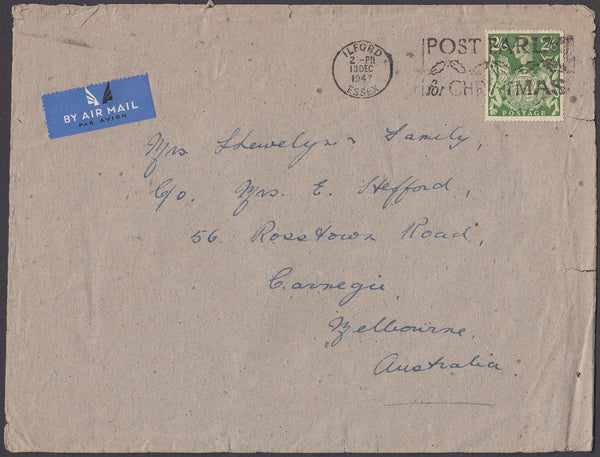 ILFORD
2 - PM
13 DEC
1947
ESSEX
POST EARLY
for CHRISTMAS
2/6 2/6
POSTAGE
BY AIR MAIL
PAR AVION
Mrs Llewelyn & Family,
C/o. Mrs. E. Hefford,
56. Rosstown Road,
Carnegie,
Melbourne,
Australia.